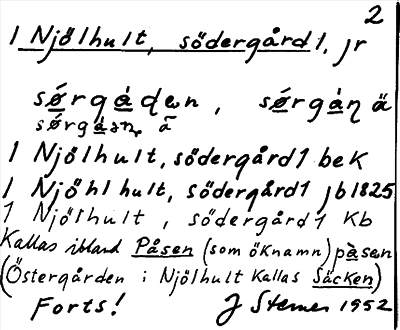 2
1 Njölhult, södergård 1, jr
sǿrgáden, sǿrgáŋ ä
sǿrgásn, ä
1 Njölhult, södergård 1 bek
1 Njöhlhult, södergård 1 jb 1825
1 Njölhult, södergård 1 Kb
Kallas ibland Påsen (som öknamn) pàsen
(Östergården i Njölhult kallas Säcken)
Forts! J Sterner 1952